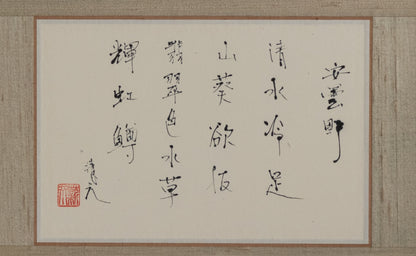 安曇野
清水冷足
山葵欲伍
翡翠色水草
輝虹鱒